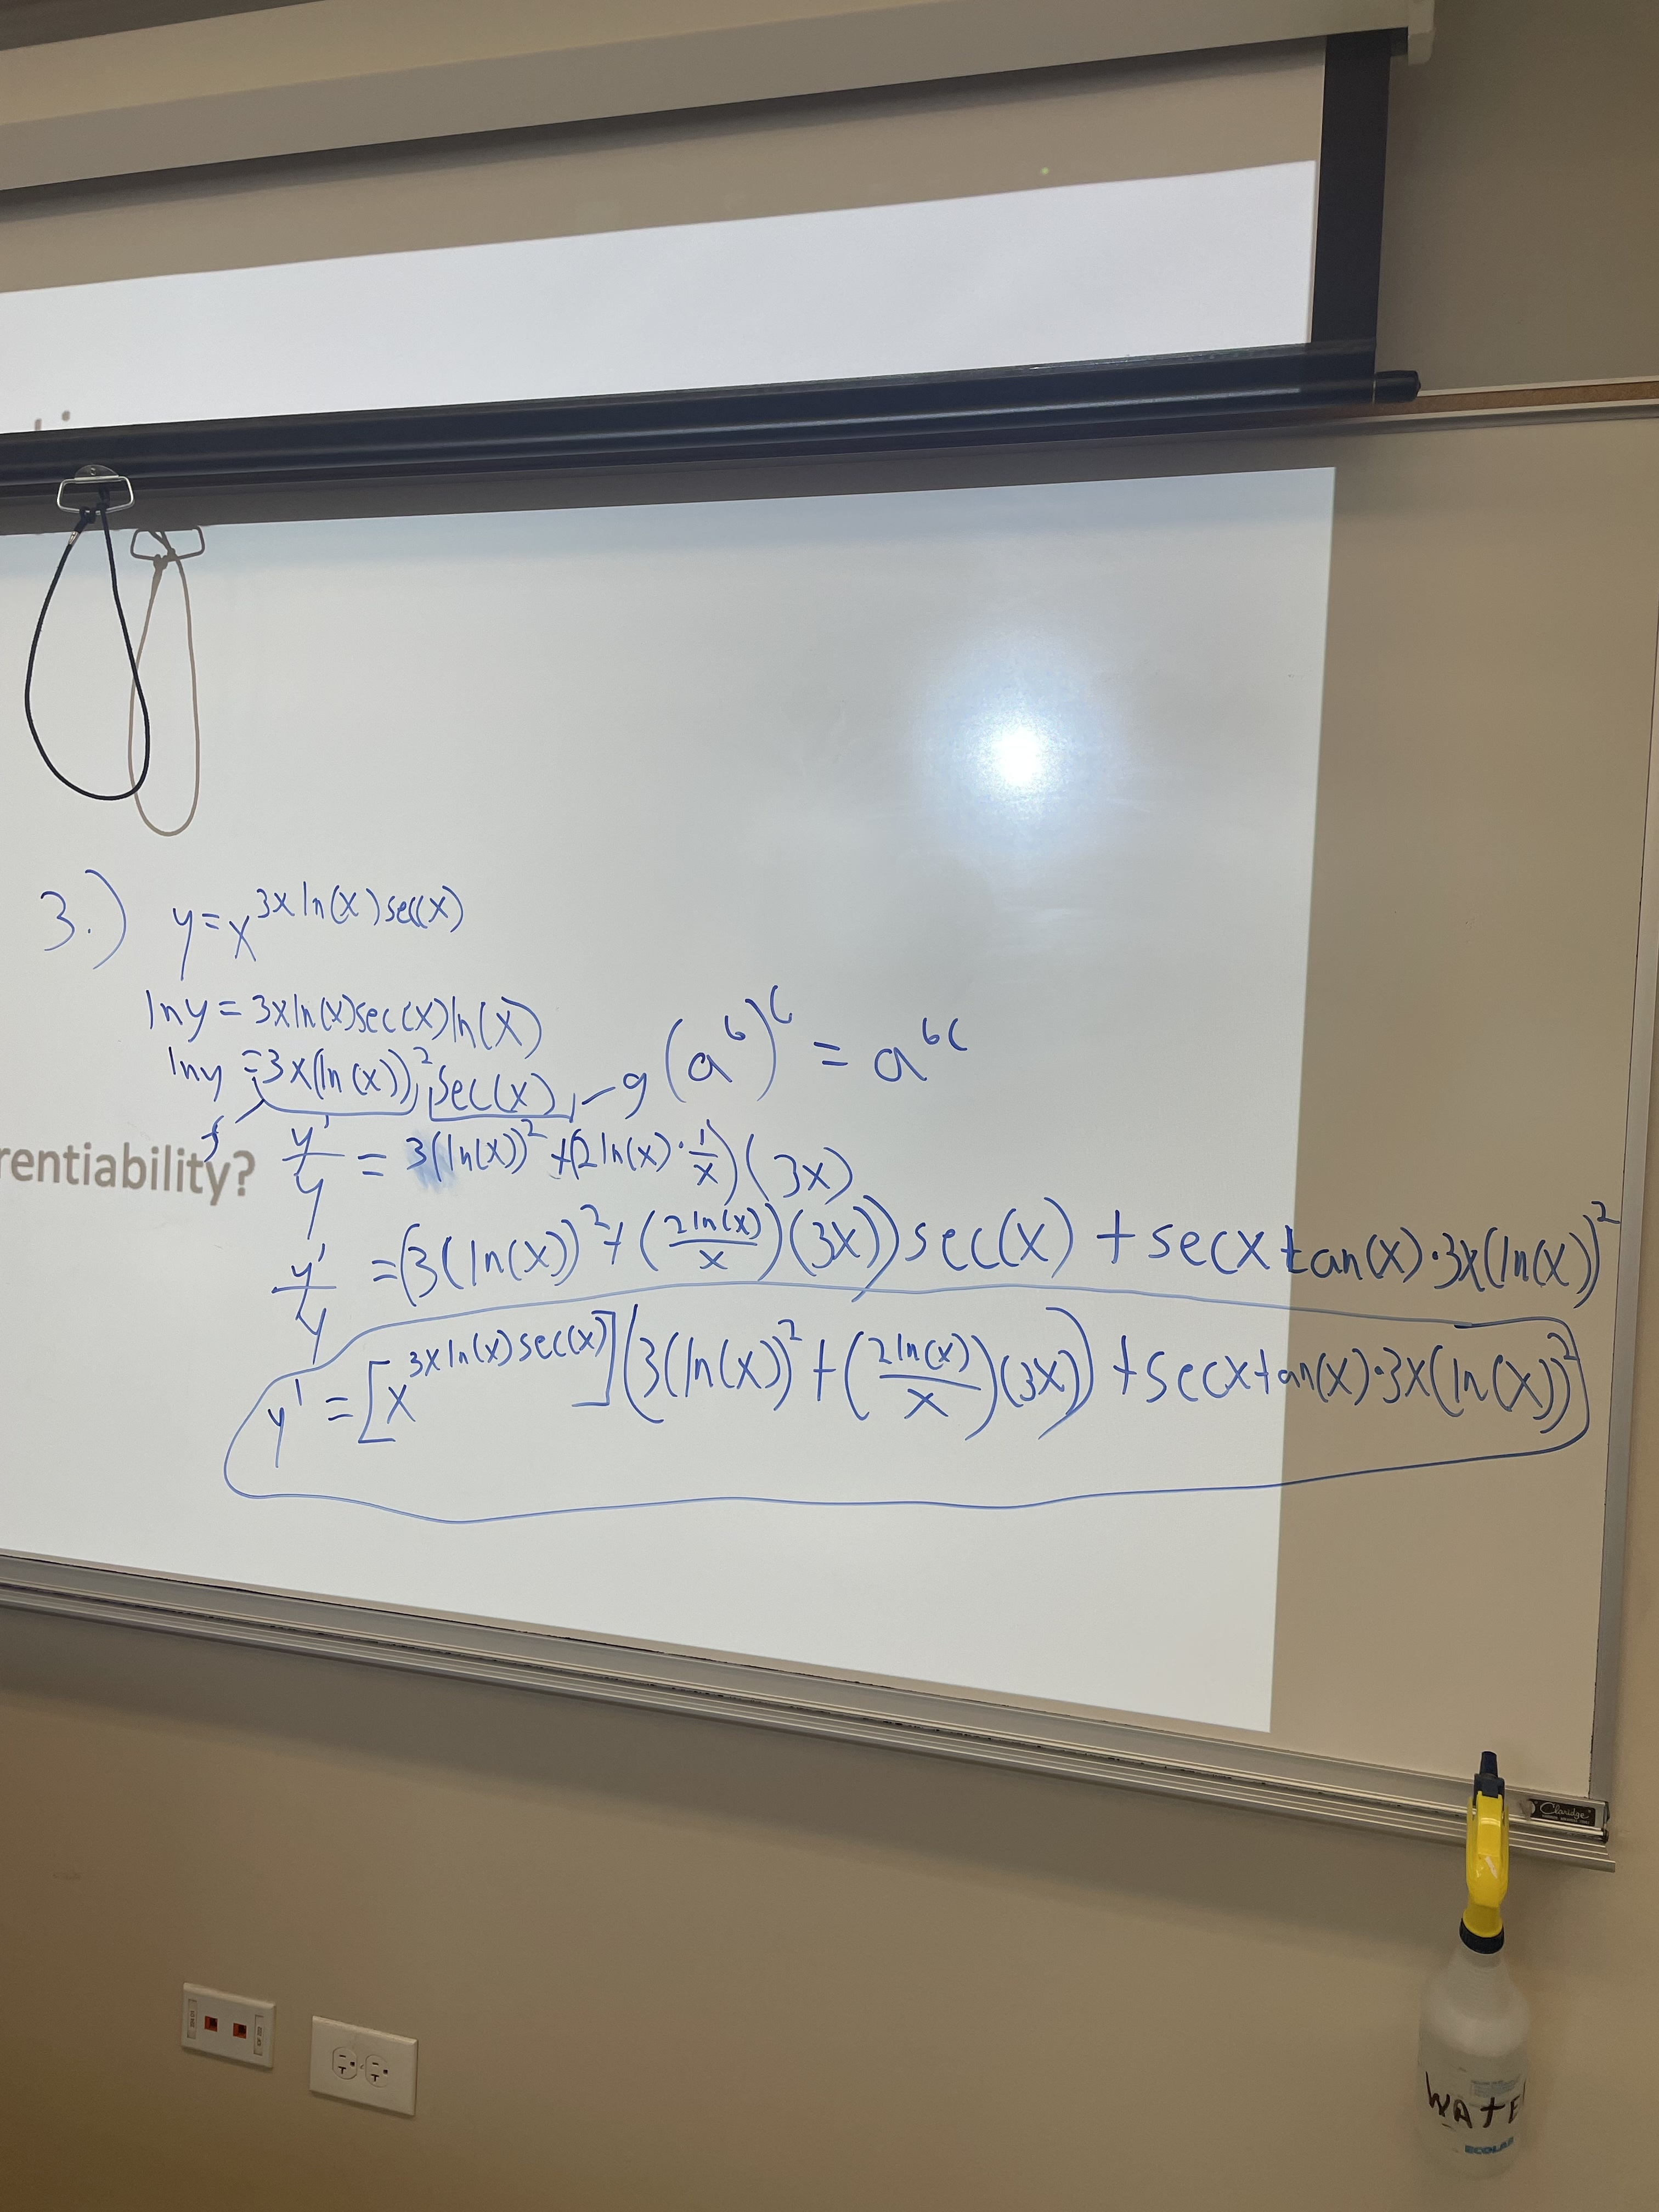 3.) y=x^{3x ln(x) sec(x)}
ln y = 3x ln(x) sec(x) ln(x)
ln y = 3x(ln(x))^2 sec(x) g (a^b)^c = a^{bc}
f
rentiability?
y'/y = 3(ln(x))^2 + (2 ln(x) · 1/x)(3x)
y'/y = (3(ln(x))^2 + (2 ln(x)/x)(3x)) sec(x) + secx tan(x)·3x(ln(x))^2
y' = [x^{3x ln(x) sec(x)}](3(ln(x))^2 + (2 ln(x)/x)(3x)) + secx tan(x)·3x(ln(x))^2
Claridge
WATE
ECOLAB